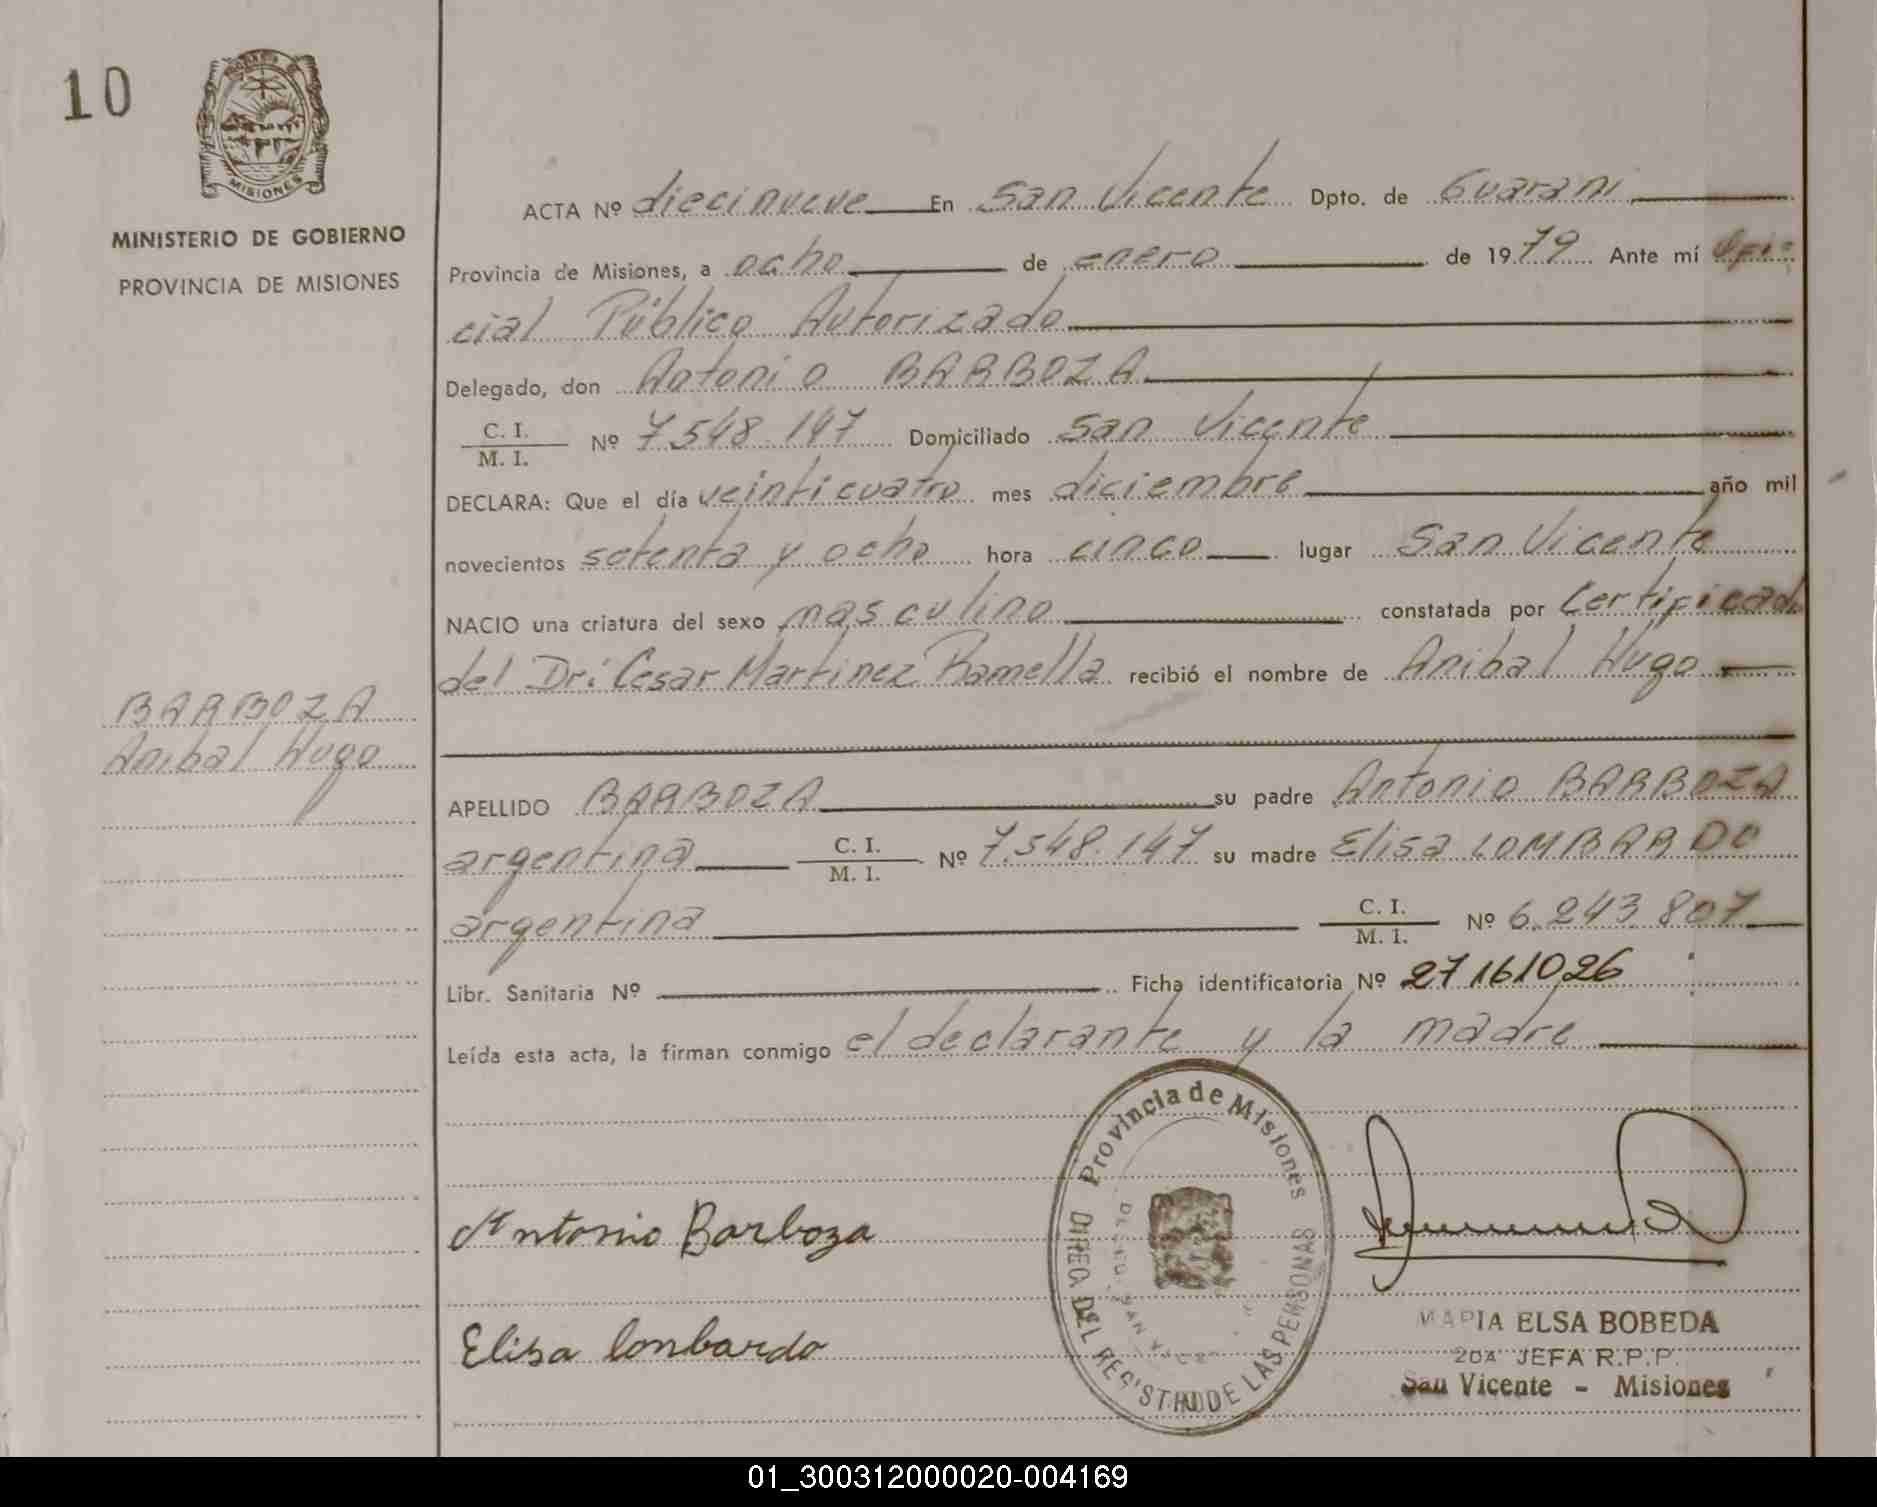 10
MISIONES
MINISTERIO DE GOBIERNO
PROVINCIA DE MISIONES
BARBOZA
Anibal Hugo
ACTA Nº diecinueve En San Vicente Dpto. de Guarani
Provincia de Misiones, a ocho de enero de 1979 Ante mí Ofi=
cial Público Autorizado
Delegado, don Antonio BARBOZA
C. I.
M. I. Nº 7.548.147 Domiciliado San Vicente
DECLARA: Que el día veinticuatro mes diciembre año mil
novecientos setenta y ocho hora cinco lugar San Vicente
NACIO una criatura del sexo masculino constatada por Certificado
del Dr: Cesar Martinez Ramella recibió el nombre de Anibal Hugo
APELLIDO BARBOZA su padre Antonio BARBOZA
argentina C. I. M. I. Nº 7.548.147 su madre Elisa LOMBARDO
argentina C. I. M. I. Nº 6.243.807
Libr. Sanitaria Nº Ficha identificatoria Nº 27161026
Leída esta acta, la firman conmigo el declarante y la madre
Provincia de Misiones
DIREC. DEL REGISTRO DE LAS PERSONAS
Antonio Barboza
Elisa lonbardo
MARIA ELSA BOBEDA
2DA JEFA R.P.P.
San Vicente - Misiones
01_300312000020-004169